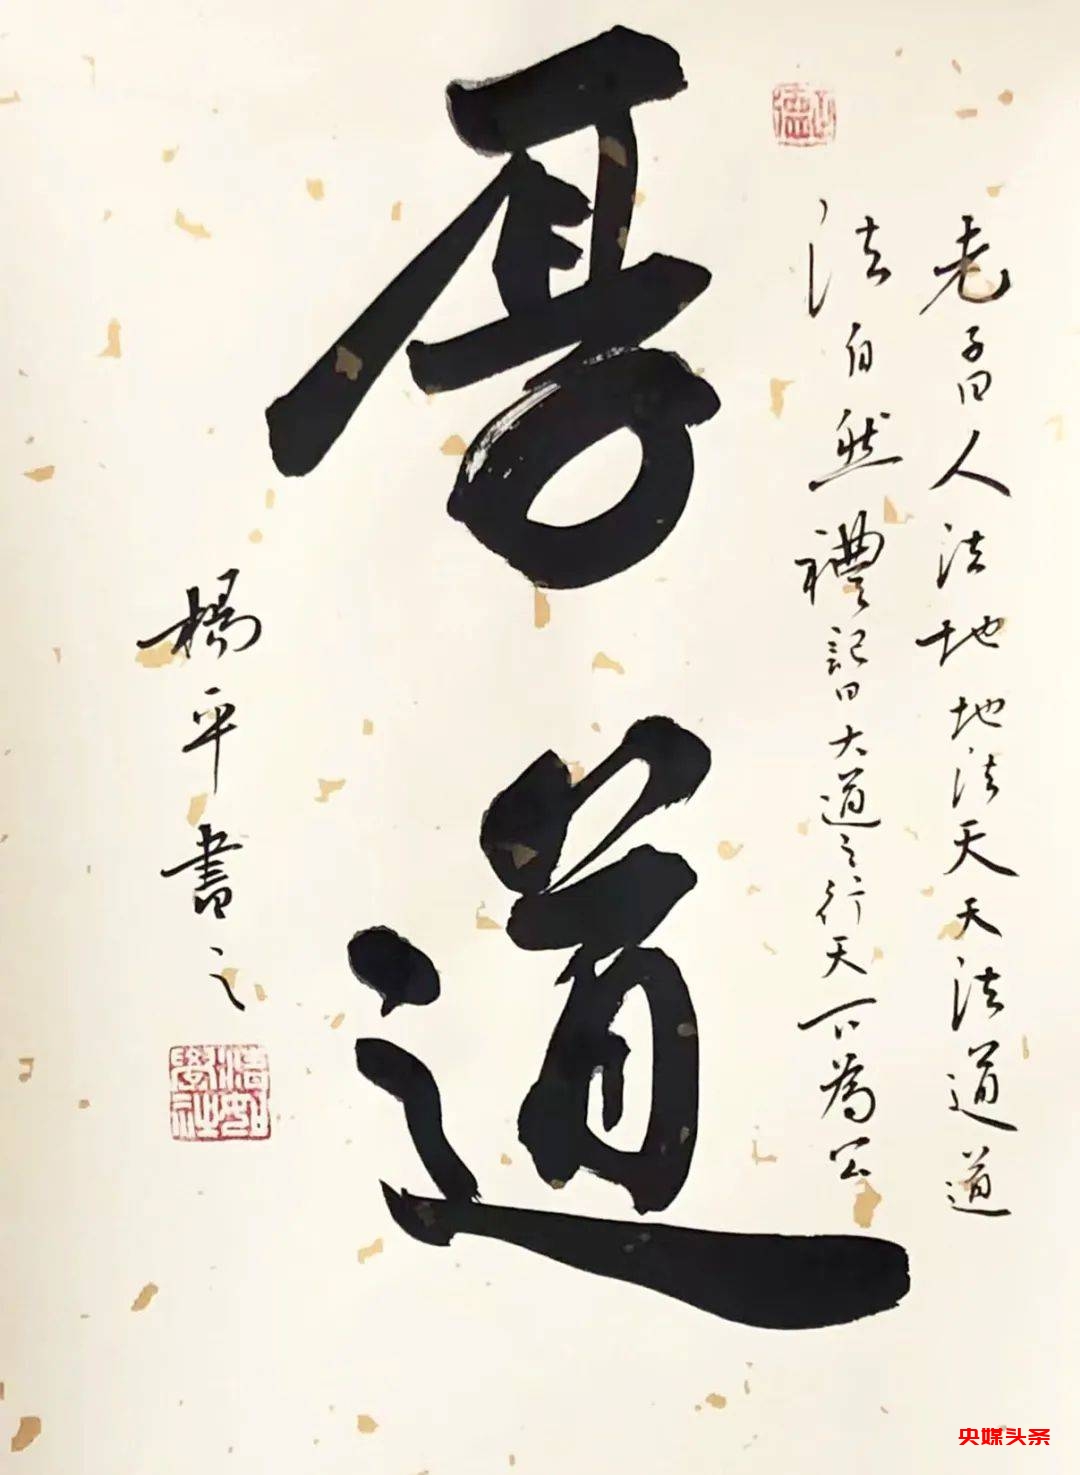 老子曰人法地地法天天法道道
法自然禮記曰大道之行天下為公
道
楊平書之
央媒头条